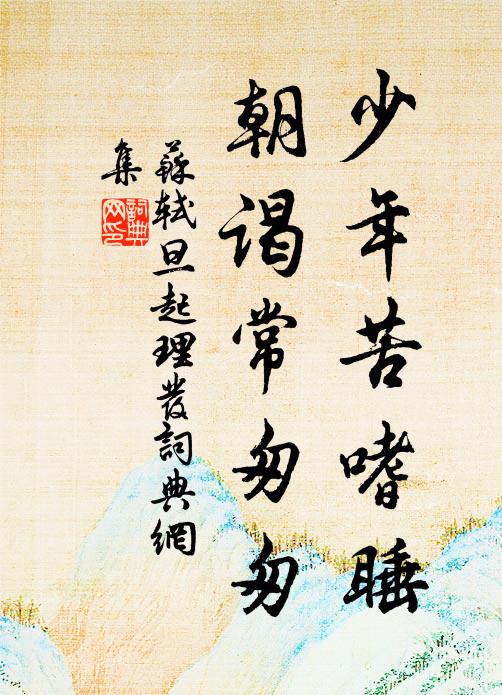 少年苦嗜睡
朝谒常匆匆
蘇軾旦起理发詞典網
集
詞典
网印